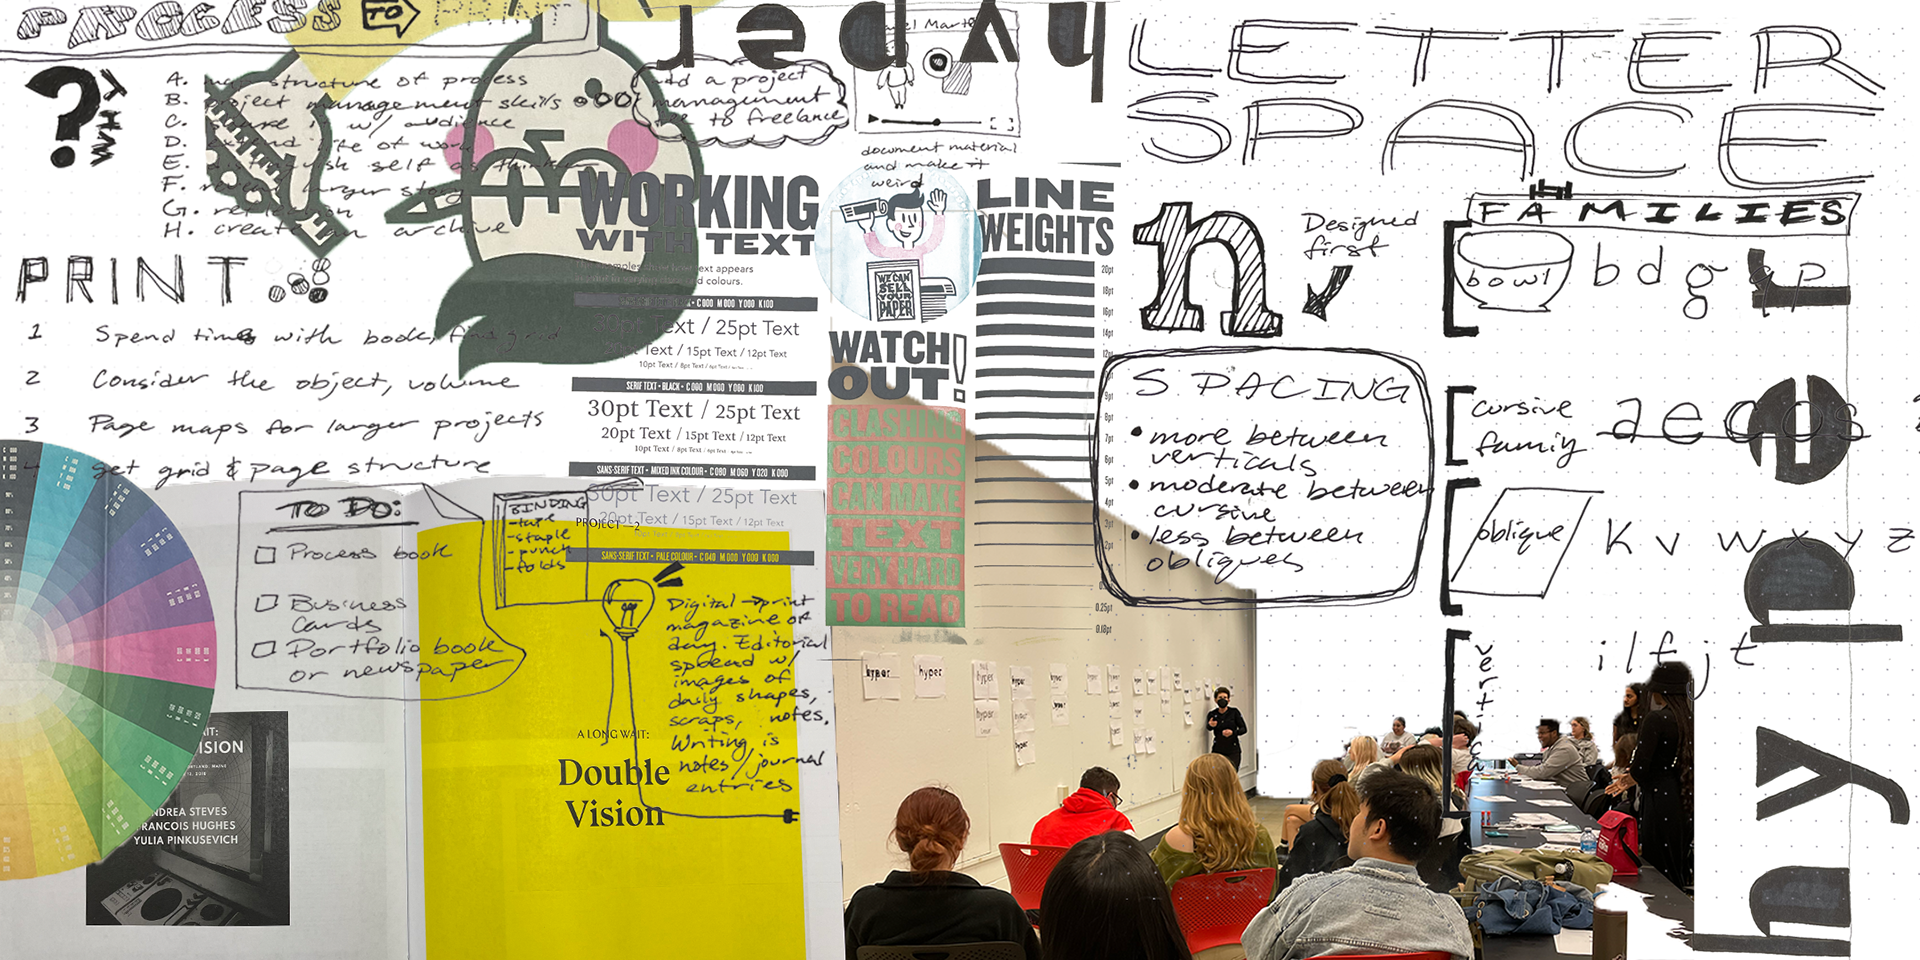 PROCESS TO PRINT
? WHY
A. structure of process
B. project management skills
C. w/ audience
D. life of work
E. self as
F. larger story
G.
H. create an archive
add a project
management
to freelance
document material
and make it
weird
PRINT
1 Spend time with book, find grid
2 Consider the object, volume
3 Page maps for larger projects
get grid & page structure
TO DO:
Process book
Business
Cards
Portfolio book
or newspaper
BINDING
-tape
-staple
-punch
-folds
PROJECT—2
Digital → print
magazine of
day. Editorial
spread w/
images of
daily shapes,
scraps, notes.
Writing is
notes/journal
entries
A LONG WAIT:
Double
Vision
ANDREA STEVES
FRANCOIS HUGHES
YULIA PINKUSEVICH
WORKING
WITH TEXT
text appears
colours.
C 000 M 000 Y 000 K 100
Text / 25pt Text
Text / 15pt Text / 12pt Text
10pt Text / 8pt Text
SERIF TEXT • BLACK • C 000 M 000 Y 000 K 100
30pt Text / 25pt Text
20pt Text / 15pt Text / 12pt Text
10pt Text / 8pt Text
SANS-SERIF TEXT • MIXED INK COLOUR • C 080 M 060 Y 020 K 080
30pt Text / 25pt Text
20pt Text / 15pt Text / 12pt Text
SANS-SERIF TEXT • PALE COLOUR • C 040 M 000 Y 000 K 000
WE CAN
SELL
YOUR
PAPER
WATCH
OUT!
CLASHING
COLOURS
CAN MAKE
TEXT
VERY HARD
TO READ
LINE
WEIGHTS
20pt
18pt
16pt
14pt
12pt
9pt
8pt
7pt
6pt
5pt
4pt
3pt
2pt
0.25pt
0.18pt
hyper
hyper
hyper
LETTER
SPACE
n
Designed
first
SPACING
• more between
verticals
• moderate between
cursive
• less between
obliques
FAMILIES
bowl
b d g q p
cursive
family
a e c o s
oblique
k v w x y z
vertical
i l f j t
hyper